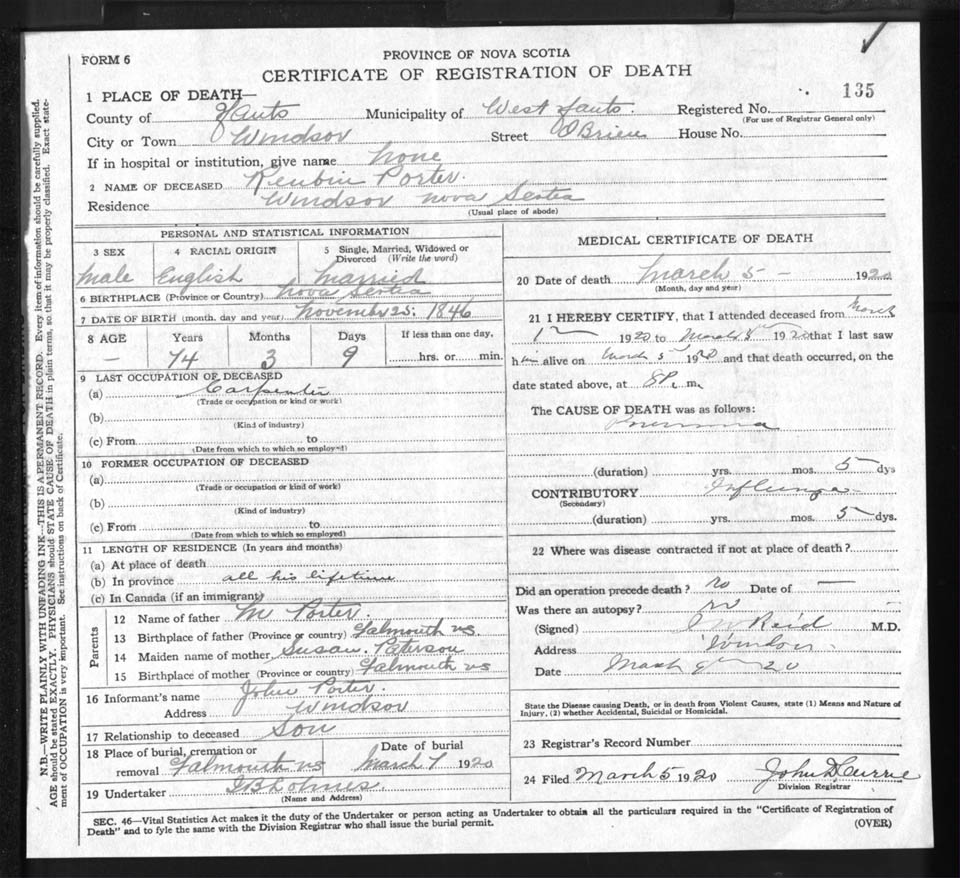 FORM 6
PROVINCE OF NOVA SCOTIA
CERTIFICATE OF REGISTRATION OF DEATH
135
1 PLACE OF DEATH—
County of Hants Municipality of West Hants Registered No.
(For use of Registrar General only)
City or Town Windsor Street O'Brien House No.
If in hospital or institution, give name none
2 NAME OF DECEASED Reubin Porter.
Residence Windsor Nova Scotia
(Usual place of abode)
PERSONAL AND STATISTICAL INFORMATION
3 SEX 4 RACIAL ORIGIN 5 Single, Married, Widowed or Divorced (Write the word)
Male English Married
6 BIRTHPLACE (Province or Country) Nova Scotia
7 DATE OF BIRTH (month, day and year) November 25, 1846
8 AGE Years Months Days If less than one day,
— 74 3 9 hrs. or min.
9 LAST OCCUPATION OF DECEASED
(a) Carpenter
(Trade or occupation or kind or work)
(b)
(Kind of industry)
(c) From to
(Date from which to which so employed)
10 FORMER OCCUPATION OF DECEASED
(a)
(Trade or occupation or kind of work)
(b)
(Kind of industry)
(c) From to
(Date from which to which so employed)
11 LENGTH OF RESIDENCE (In years and months)
(a) At place of death
(b) In province all his lifetime
(c) In Canada (if an immigrant)
Parents
12 Name of father M Porter.
13 Birthplace of father (Province or country) Falmouth NS.
14 Maiden name of mother Susan Paterson
15 Birthplace of mother (Province or country) Falmouth NS
16 Informant's name John Porter.
Address Windsor
17 Relationship to deceased Son
18 Place of burial, cremation or removal Falmouth NS Date of burial March 7 1920
19 Undertaker
(Name and Address)
MEDICAL CERTIFICATE OF DEATH
20 Date of death March 5 — 1920
(Month, day and year)
21 I HEREBY CERTIFY, that I attended deceased from March
1st 1920 to March 5 1920 that I last saw
him alive on March 5 1920 and that death occurred, on the
date stated above, at 8 P. m.
The CAUSE OF DEATH was as follows:
Pneumonia
(duration) yrs. mos. 5 dys
CONTRIBUTORY Influenza
(Secondary)
(duration) yrs. mos. 5 dys.
22 Where was disease contracted if not at place of death?
Did an operation precede death? no Date of —
Was there an autopsy? no —
(Signed) J W Reid M.D.
Address Windsor
Date March 9th 20
State the Disease causing Death, or in death from Violent Causes, state (1) Means and Nature of
Injury, (2) whether Accidental, Suicidal or Homicidal.
23 Registrar's Record Number
24 Filed March 5 1920 John D Currie
Division Registrar
SEC. 46—Vital Statistics Act makes it the duty of the Undertaker or person acting as Undertaker to obtain all the particulars required in the "Certificate of Registration of
Death" and to fyle the same with the Division Registrar who shall issue the burial permit.
(OVER)
N.B.—WRITE PLAINLY WITH UNFADING INK—THIS IS A PERMANENT RECORD. Every item of information should be carefully supplied.
AGE should be stated EXACTLY. PHYSICIANS should STATE CAUSE OF DEATH in plain terms, so that it may be properly classified. Exact state-
ment of OCCUPATION is very important. See instructions on back of Certificate.